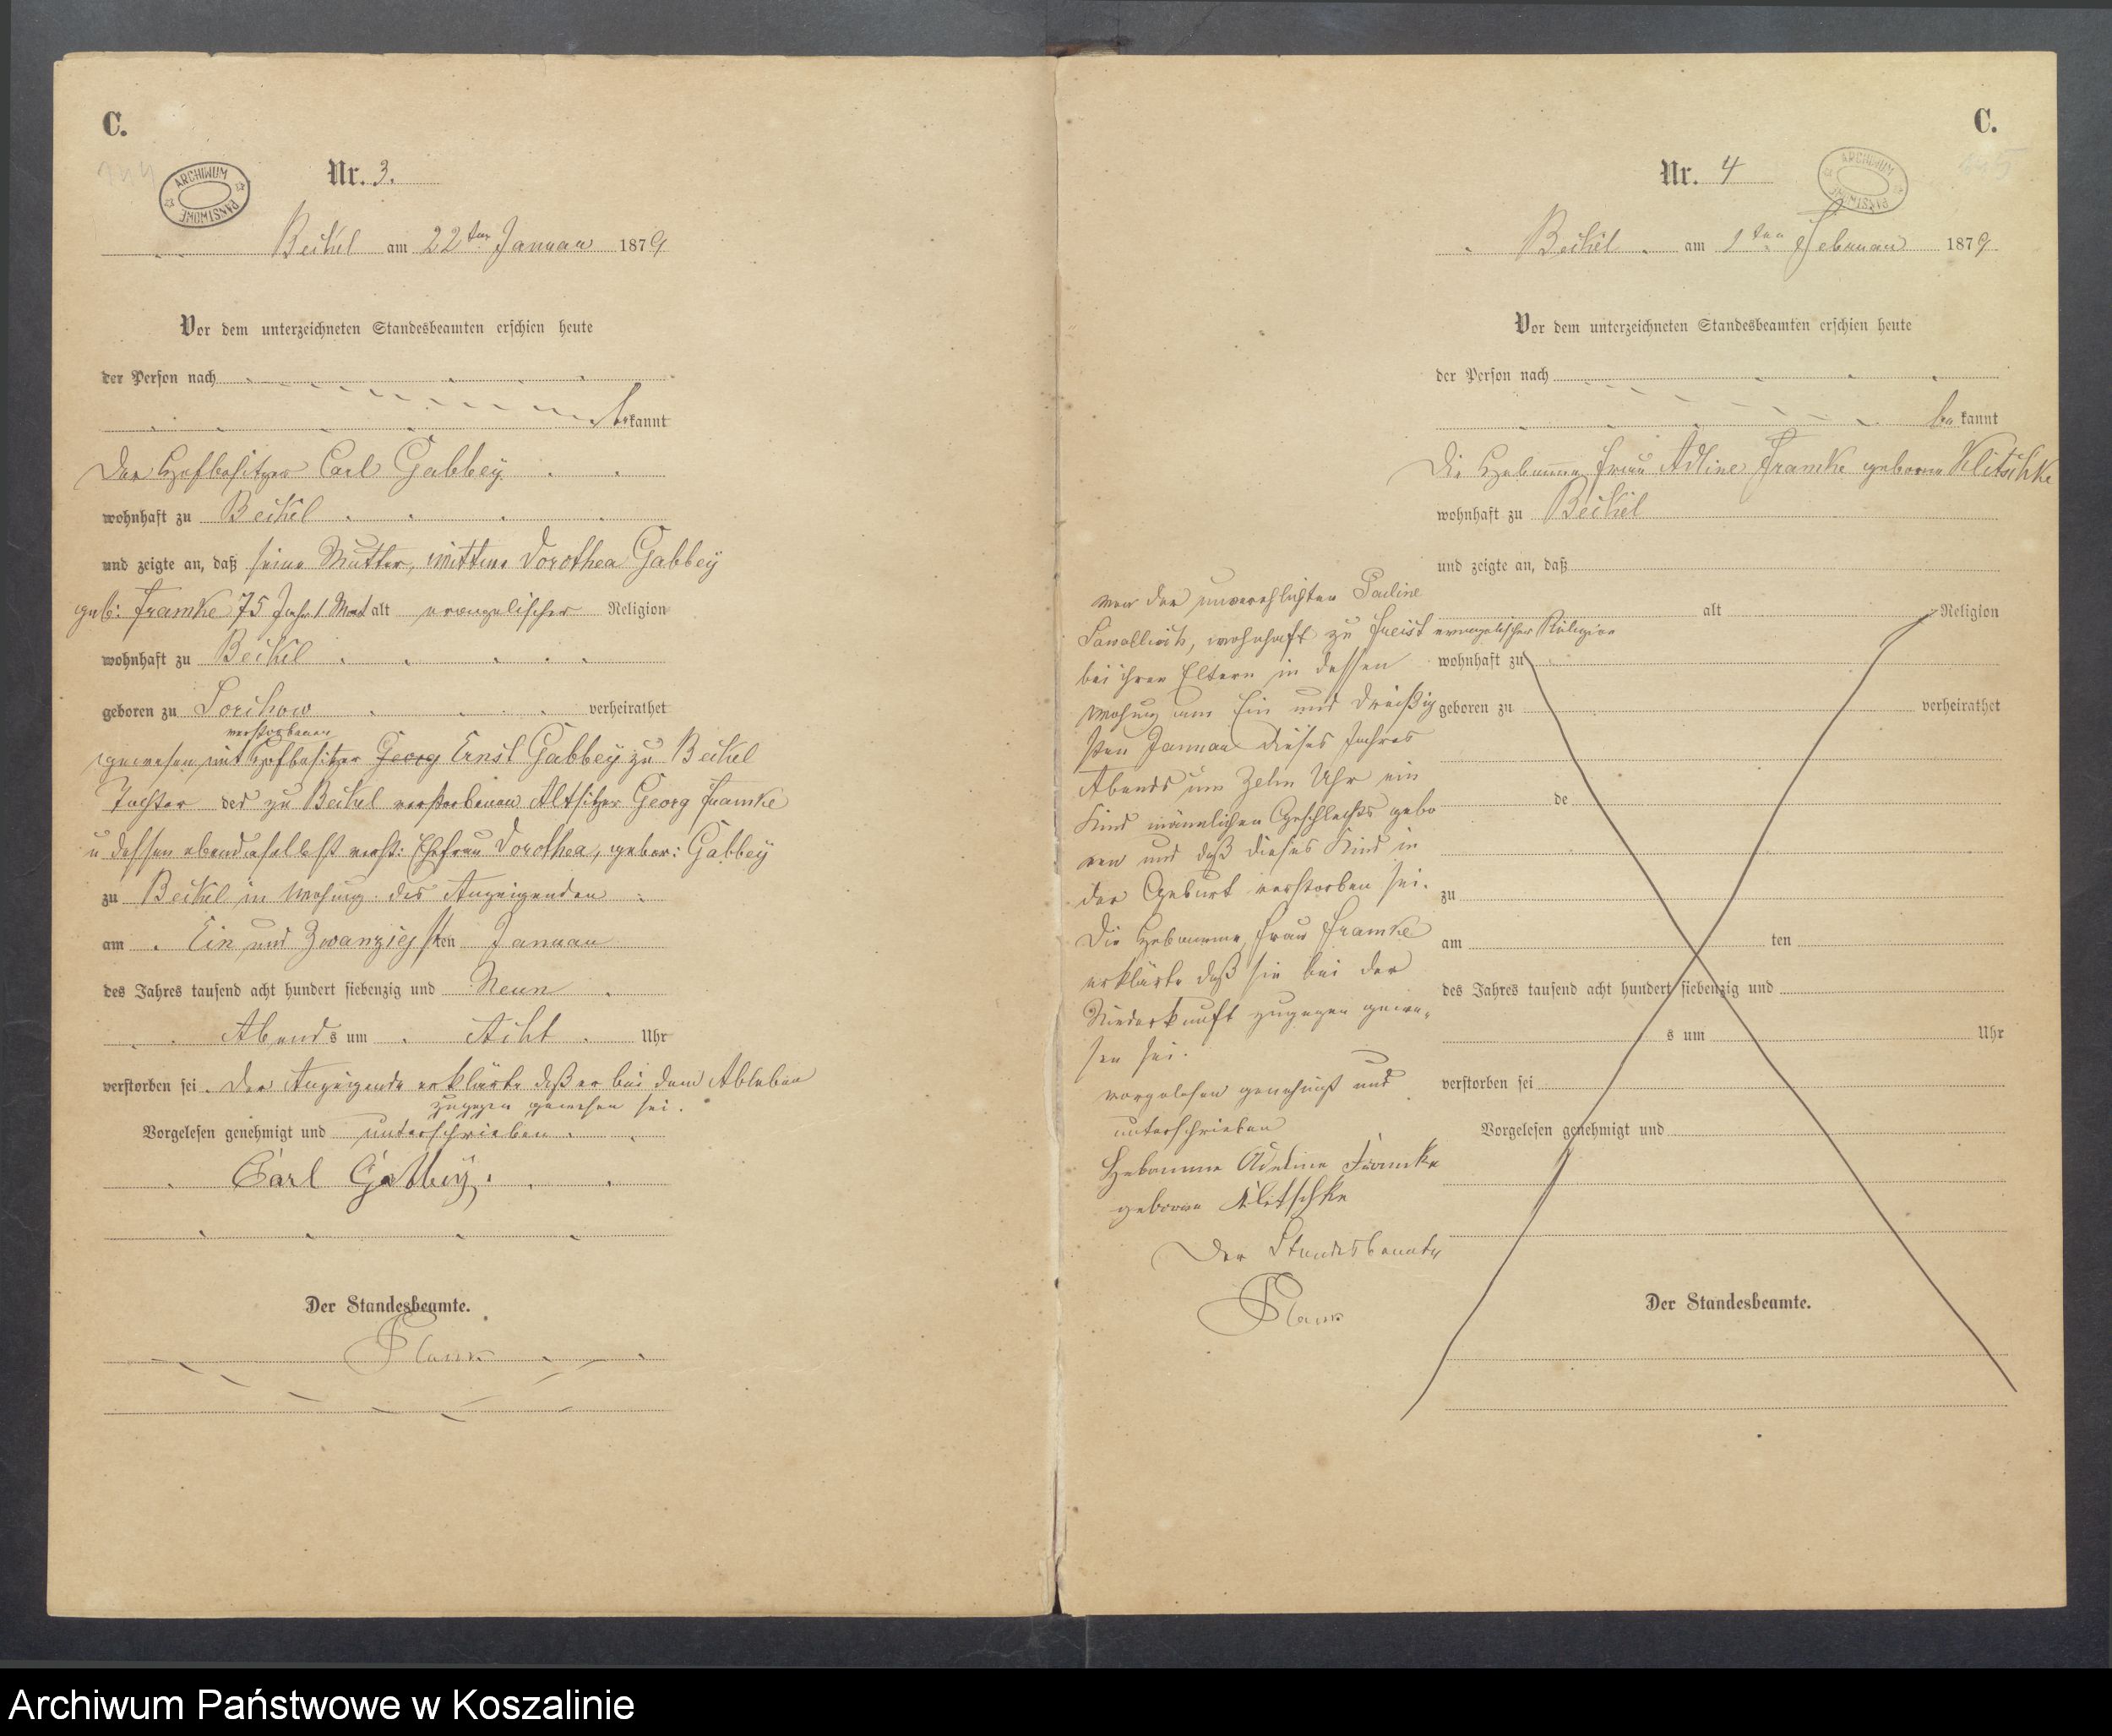 C.
ARCHIWUM PAŃSTWOWE
Nr. 3.
Beikel am 22ten Januar 1879
Vor dem unterzeichneten Standesbeamten erschien heute
der Person nach
bekannt
Der Hofbesitzer Carl Gabbey
wohnhaft zu Beikel
und zeigte an, daß seine Mutter, Wittwe Dorothea Gabbey
geb: Framke 75 Jahr 1 Mont alt evangelischer Religion
wohnhaft zu Beikel
geboren zu Sorchow verheirathet
verstorbenen
gewesen mit Hofbesitzer Georg Ernst Gabbey zu Beikel
Tochter des zu Beikel verstorbenen Altsitzer Georg Framke
u dessen ebendaselbst verst: Ehefrau Dorothea, gebor: Gabbey
zu Beikel in Wohnung des Anzeigenden
am Ein und Zwanzigsten Januar
des Jahres tausend acht hundert siebenzig und Neun
Abends um Acht Uhr
verstorben sei. Der Anzeigende erklärte daß er bei dem Ableben
zugegen gewesen sei.
Vorgelesen genehmigt und unterschrieben
Carl Gabbey
Der Standesbeamte.
C.
Nr. 4
ARCHIWUM PAŃSTWOWE
Beikel am 1ten Februar 1879
Vor dem unterzeichneten Standesbeamten erschien heute
der Person nach
bekannt
Die Hebamme Frau Adline Framke geborne Klitschke
wohnhaft zu Beikel
und zeigte an, daß
von der unverehlichten Pauline
wohnhaft zu Freist evangelischer Religion
bei ihren Eltern in dessen
Wohnung am Ein und dreißig
sten Januar dieses Jahres
Abends um Zehn Uhr ein
Kind männlichen Geschlechts gebo
ren und daß dieses Kind in
der Geburt verstorben sei.
Die Hebamme, Frau Framke
erklärte daß sie bei der
Niederkunft zugegen gewe-
sen sei.
vorgelesen genehmigt und
unterschrieben
Hebamme Adeline Framke
geborne Klitschke
Der Standesbeamte
alt Religion
wohnhaft zu
geboren zu verheirathet
de
zu
am ten
des Jahres tausend acht hundert siebenzig und
s um Uhr
verstorben sei
Vorgelesen genehmigt und
Der Standesbeamte.
Archiwum Państwowe w Koszalinie